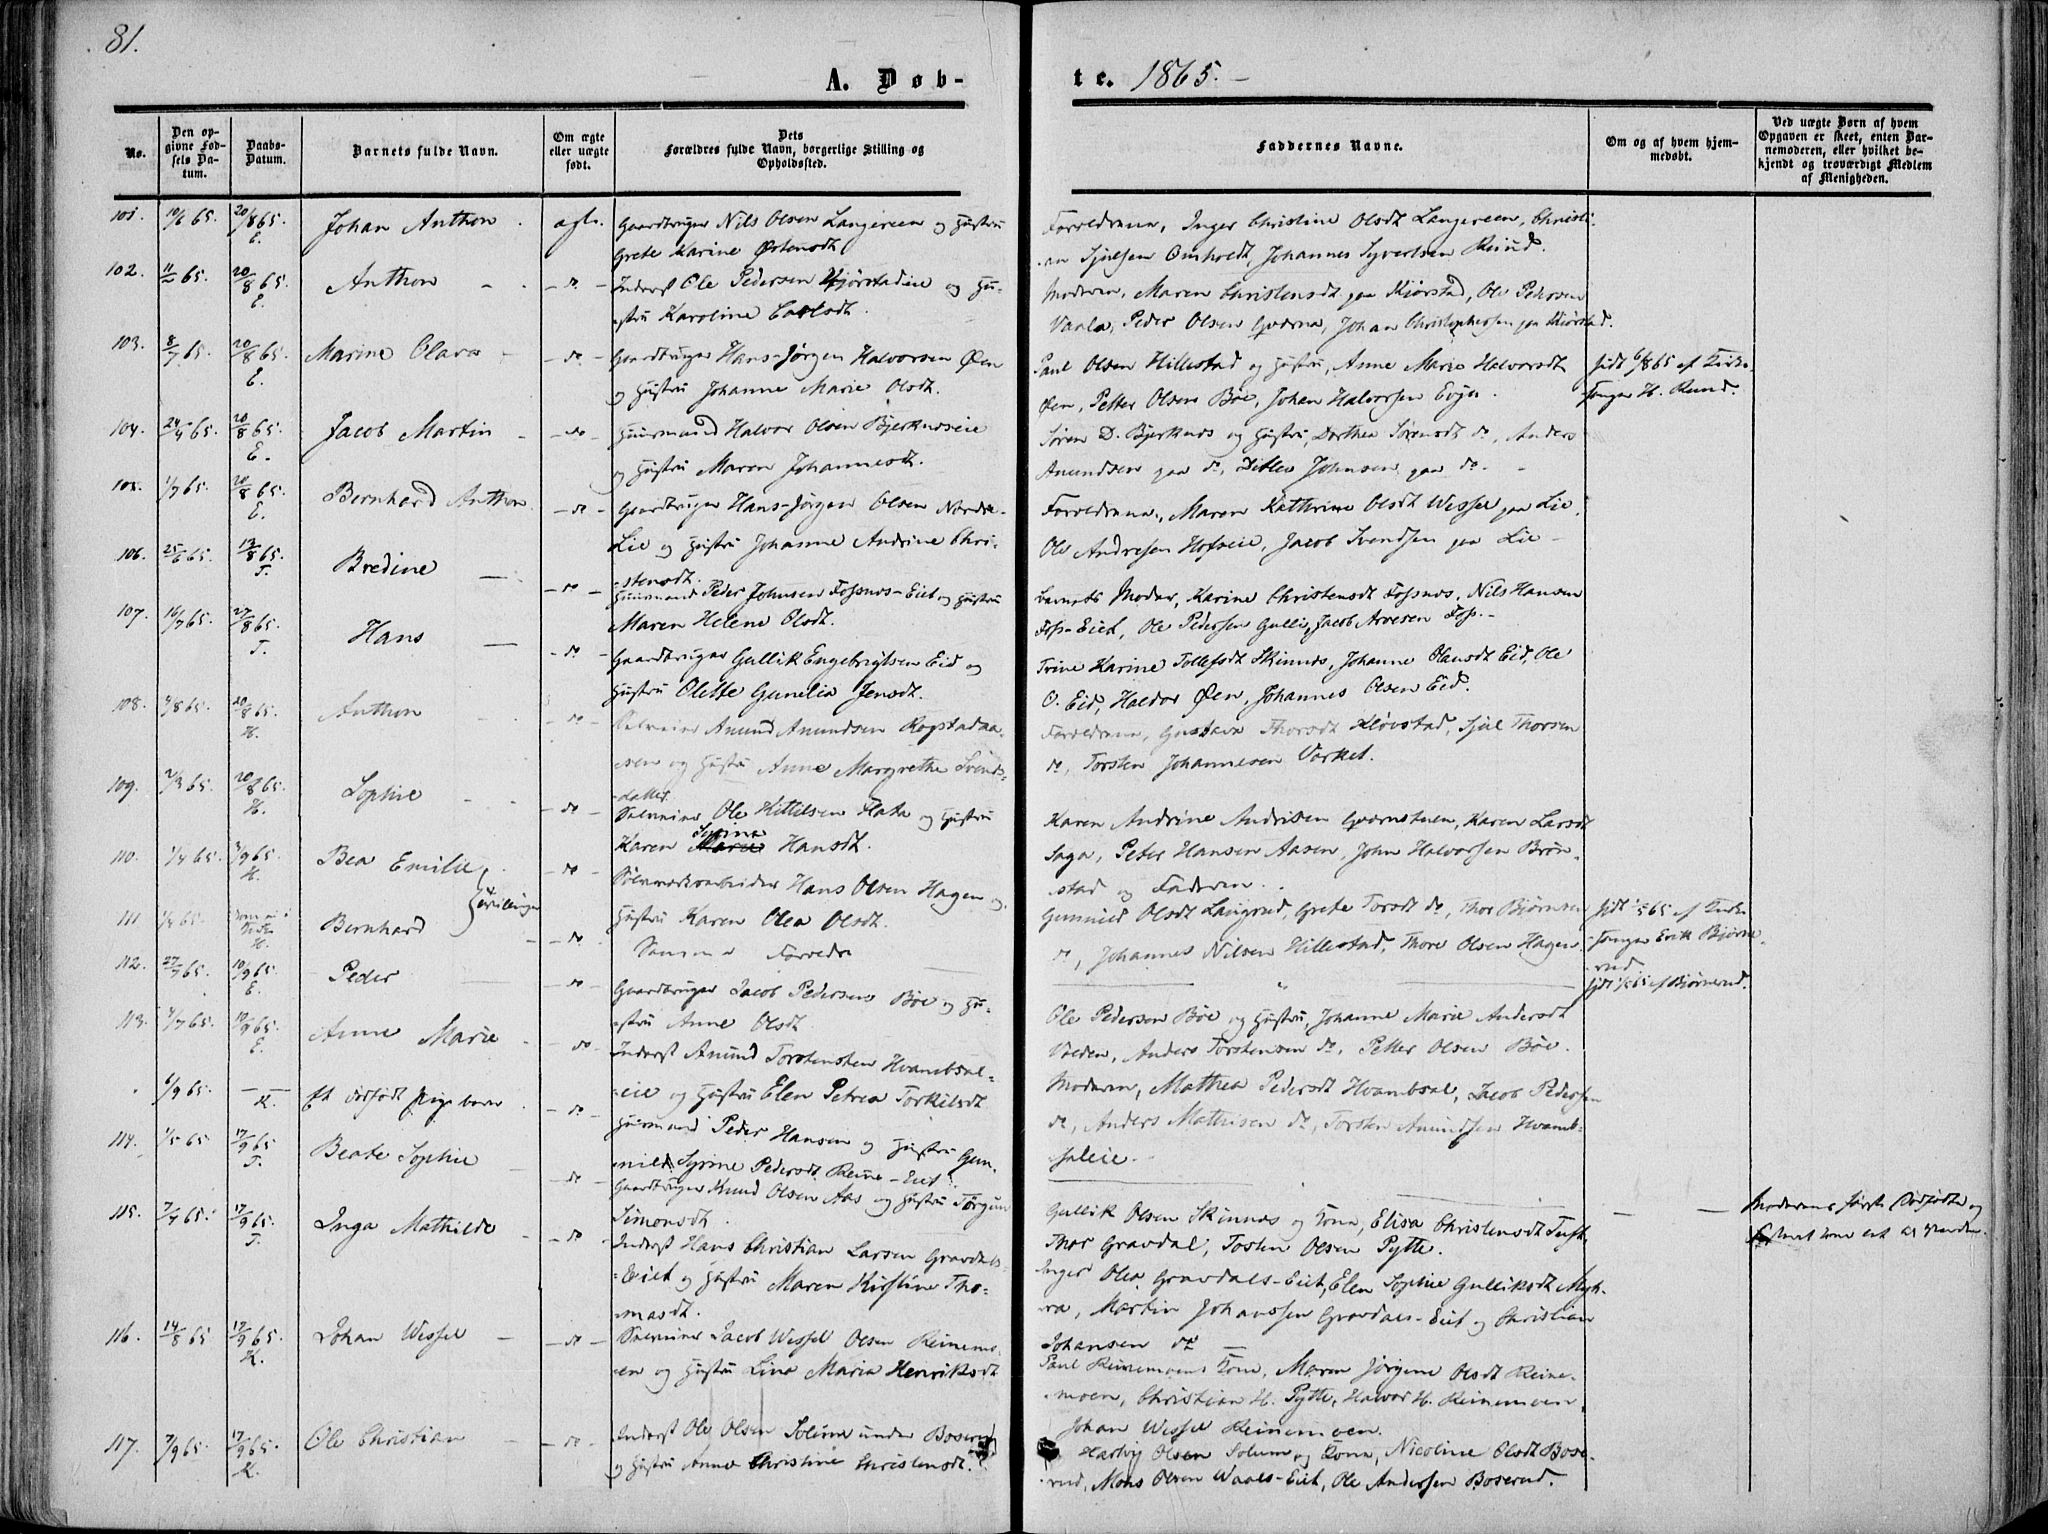 81.
A. Døb-
te. 1865.
No.
Den opgivne Fødsels Datum.
Daabs-Datum.
Barnets fulde Navn.
Om ægte eller uægte født.
Dets Forældres fulde Navn, borgerlige Stilling og Opholdssted.
Faddernes Navne.
Om og af hvem hjemmedøbt.
Ved uægte Børn af hvem Opgaven er skeet, enten Barnemoderen, eller hvilket bekjendt og troværdigt Medlem af Menigheden.
101. 10/6 65. 20/8 65. E. Johan Anthon ægte. Gaardbruger Nils Olsen Langereen og Hustru
Grete Karine Østensdt.
Forældrene, Inger Christine Olsdt Langereen, Christi-
an Sjulsen Omholdt, Johannes Syvertsen Reiud.
102. 11/2 65. 20/8 65. E. Anthon do Inderst Ole Pedersen Kjørstadeie og Hu-
stru Karoline Carlsdt.
Moderen, Maren Christensdt paa Kjørstad, Ole Pedersen
Vaala, Peder Olsen Qværna, Johan Christophersen paa Kjørstad.
103. 8/7 65. 20/8 65. E. Marine Olava do Gaardbruger Hans-Jørgen Halvorsen Øen
og Hustru Johanne Marie Olsdt.
Paul Olsen Hillestad og Hustru, Anne Marie Halvorsdt
Øen, Petter Olsen Bøe, Johan Halvorsen Evju.
Hjdt 6/8 65 af Kirke-
sanger H. Ruud.
104. 24/4 65. 20/8 65. E. Jacob Martin do Huusmand Halvor Olsen Bjerknæseie
og Hustru Maren Johannesdt.
Søren D. Bjerknæs og Hustru, Dorthea Sørensdt do, Anders
Amundsen paa do, Ditlev Johnsen paa do.
105. 1/7 65. 20/8 65. E. Bernhard Anthon do Gaardbruger Hans-Jørgen Olsen Nordre-
Lie og Hustru Johanne Andrine Chri-
stensdt.
Forældrene, Maren Kathrine Olsdt Wessel paa Lie,
Ole Andresen Hofseie, Jacob Svendsen paa Lie
106. 25/6 65. 13/8 65. T. Bredine do Huusmand Peder Johnsen Fossnæs-Eiet og Hustru
Maren Helene Olsdt.
Barnets Moder, Karine Christensdt Fossnæs, Nils Hansen
Foss-Eiet, Ole Pedersen Gulli, Jacob Arvesen Foss.
107. 16/7 65. 27/8 65. T. Hans do Gaardbruger Gullik Engebrigtsen Eid og
Hustru Olette Gunelia Jensdt.
Trine Karine Tollefsdt Skinnes, Johanne Olausdt Eid, Ole
O. Eid, Haldor Øen, Johannes Olsen Eid.
108. /8 65. 20/8 65. H. Anthon do Amund Amundsen Rogstadaa-
sen og Hustru Anne Margrethe Svends-
datter
Forældrene, Gustava Thorsdt Kløvstad, Sjul Thorsen
do, Torsten Johannesen Værket.
109. 2/3 65. 20/8 65. H. Sophie do Ole Kittilsen Flata og Hustru
Karen Syrine Hansdt.
Karen Andrine Andrisen Qværnstuen, Karen Larsdt
Saga, Peter Hansen Aasen, John Halvorsen Brøn-
stad og Faderen.
110. 1/4 65. /9 65. H. Bea Emilie Tvillinger do Sølvværksarbeider Hans Olsen Hagen og
Hustru Karen Olea Olsdt.
Gunnild Olsdt Langrud, Grete Torsdt do, Thor Bjørnsen
do, Johannes Nilsen Hillestad, Thore Olsen Hagen.
Hjdt 1/5 65 af Kirke-
sanger Erik Bjørne-
rud
111 1/4 65. H. Bernhard do Samme Forældre
Hjdt 1/5 65 af Bjørnerud.
112. 27/7 65. 10/9 65. E. Peder do Gaardbruger Jacob Pedersen Bøe og Hu-
stru Anne Olsdt
Ole Pedersen Bøe og Hustru, Johanne Marie Andersdt
Volden, Anders Torstensen do, Petter Olsen Bøe.
113. 4/7 65. 10/9 65. E. Anne Marie do Inderst Amund Torstensten Hvambsal-
eie og Hustru Elen Petrea Torkilsdt
Moderen, Mathea Pedersdt Hvambsal, Jacob Pedersen
do, Anders Mathisen do, Torsten Amundsen Hvamb-
saleie.
6/9 65. K. Et dødfødt Pigebarn do Huusmand Peder Hansen og Hustru Gun-
nild Syrine Pedersdt Reine-Eiet
Moderens første Dødfødte og
114. 1/5 65 17/9 65. T. Beate Sophie do Gaardbruger Knud Olsen Aas og Hustru Jørgine
Simonsdt.
Gullik Olsen Skinnes og Kone, Elisa Christensdt Tuft,
Thor Gravdal, Tosten Olsen Pytte.
115. 7/4 65. 17/9 65. T. Inga Mathilde do Inderst Hans Christian Larsen Gravdals-
Eiet og Hustru Maren Kirstine Tho-
masdt.
Inger Olea Gravdals-Eiet, Elen Sophie Gulliksdt Myh-
ra, Martin Johanssen Gravdals-Eiet og Christian
Johansen do
116. 14/8 65 17/9 65. K. Johan Wessel do Jacob Wessel Olsen Reinemo-
en og Hustru Lina Maria Henriksdt
Paul Reinemoens Kone, Maren Jørgine Olsdt Reine-
moen, Christian H. Pytte, Halvor H. Reinemoen,
Johan Wessel Reinemoen.
117. 7/9 65. 17/9 65. K. Ole Christian do Inderst Ole Olsen Solum under Boserud
og Hustru Anne Christine Christensdt.
Hartvig Olsen Solum og Kone, Nicoline Olsdt Bose-
rud, Mons Olsen Waals-Eiet, Ole Andersen Boserud.